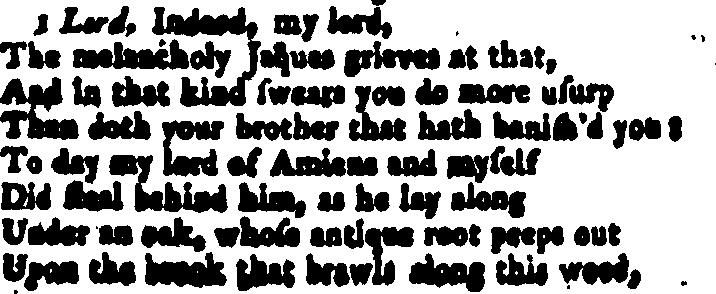 1 Lord, Indeed, my lord,
The melancholy Jaques grieves at that,
And in that kind ſwears you do more uſurp
Than doth your brother that hath baniſh'd you :
To day my lord of Amiens and myſelf
Did ſteal behind him, as he lay along
Under an oak, whoſe antique root peeps out
Upon the brook that brawls along this wood,